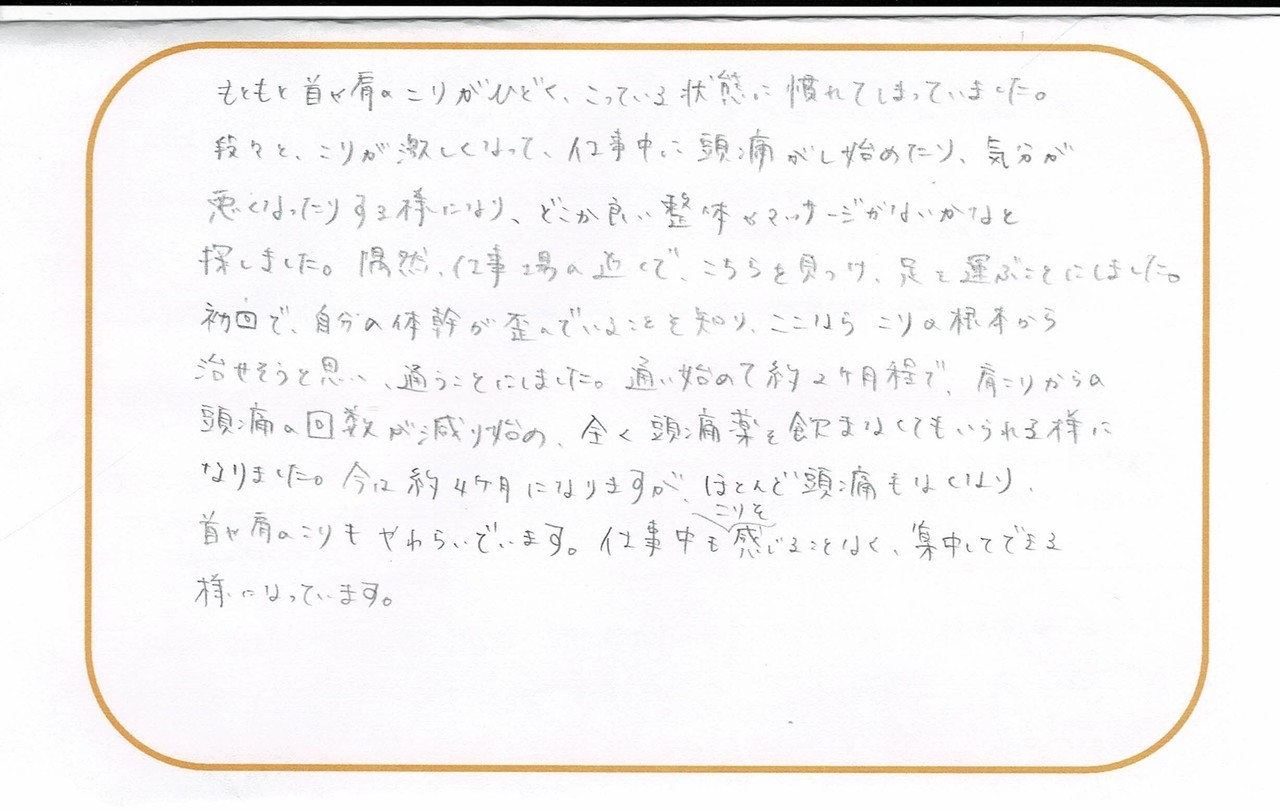 もともと首や肩のこりがひどく、こっている状態に慣れてしまっていました。
段々と、こりが激しくなって、仕事中に頭痛がし始めたり、気分が
悪くなったりする様になり、どこか良い整体やマッサージがないかなと
探しました。偶然、仕事場の近くで、こちらを見つけ、足を運ぶことにしました。
初回で、自分の体幹が歪んでいることを知り、ここなら こりの根本から
治せそうと思い、通うことにしました。通い始めて約2ケ月程で、肩こりからの
頭痛の回数が減り始め、全く頭痛薬を飲まなくてもいられる様に
なりました。今は約4ケ月になりますが、ほとんど頭痛もなくなり、
首や肩のこりもやわらいでいます。仕事中もこりを感じることなく、集中してできる
様になっています。